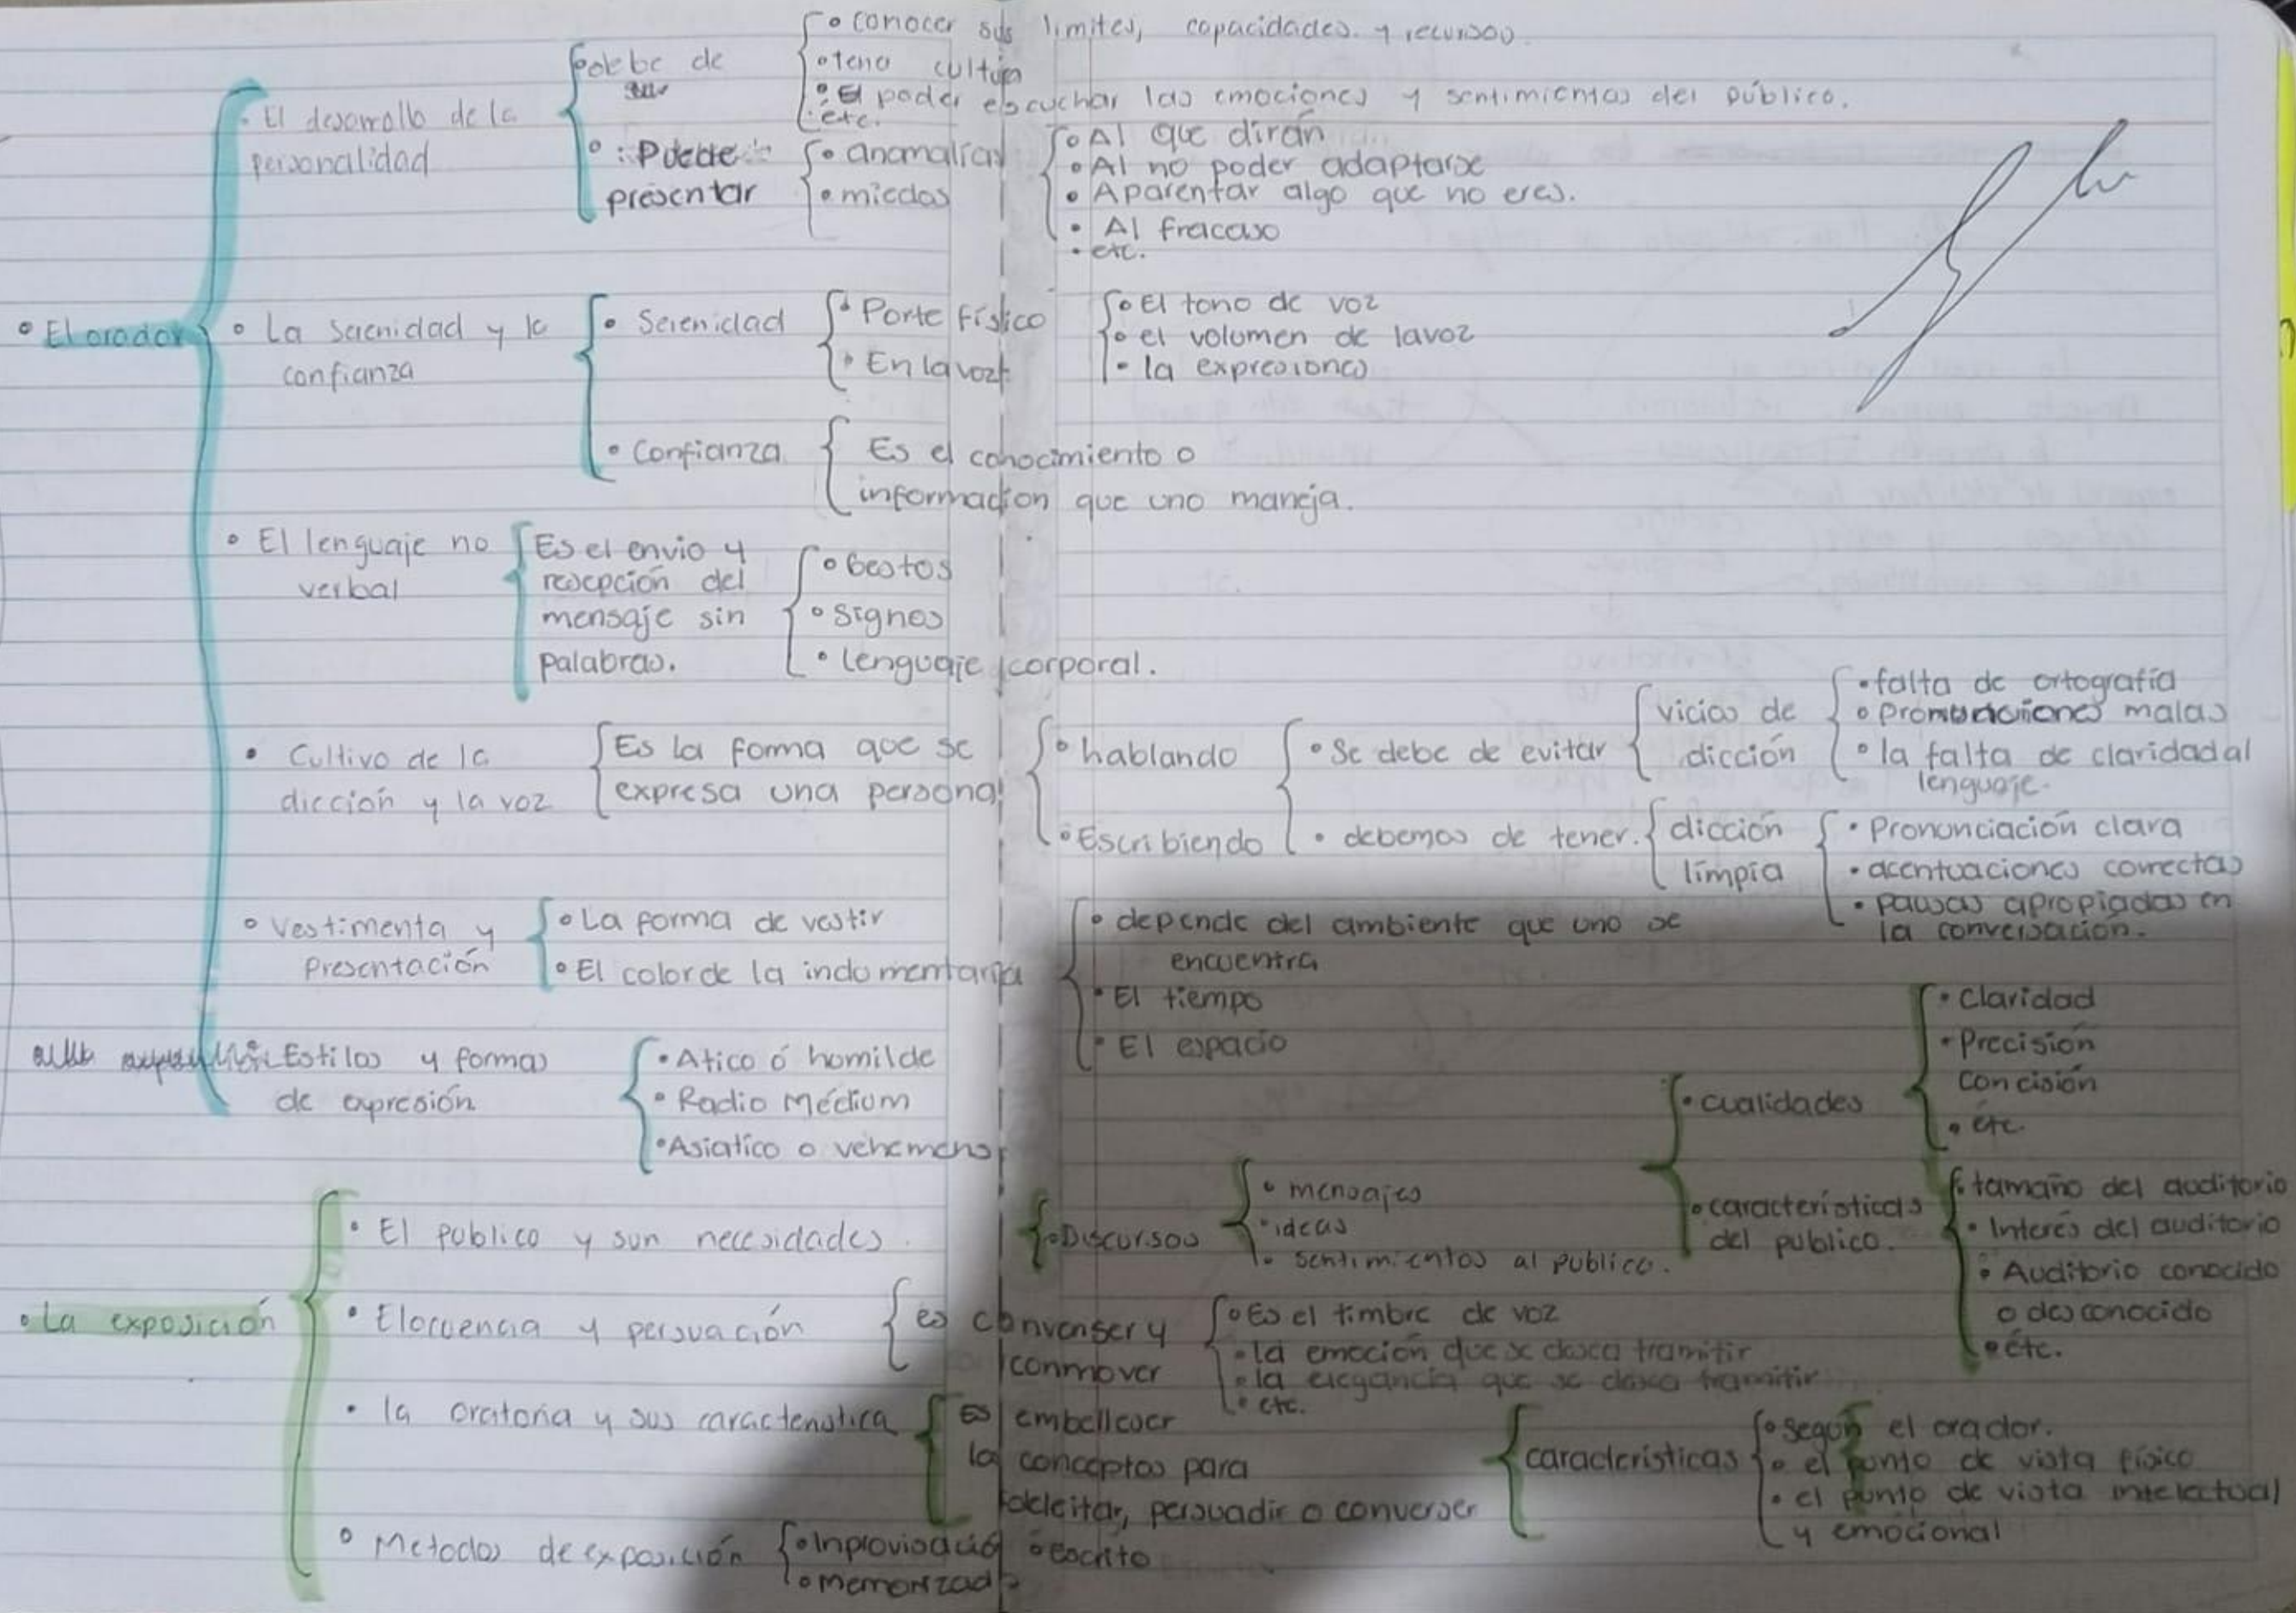 • El orador
• El desarrollo de la
personalidad
debe de
• conocer sus limites, capacidades y recursos.
• tener cultura
• El poder escuchar las emociones y sentimientos del público.
• etc.
• Puede
presentar
• anomalías
• miedos
• Al que dirán
• Al no poder adaptarse
• Aparentar algo que no eres.
• Al fracaso
• etc.
• La serenidad y la
confianza
• Serenidad
• Porte físico
• En la voz
• El tono de voz
• el volumen de la voz
• la expresiones
• Confianza
Es el conocimiento o
informacion que uno maneja.
• El lenguaje no
verbal
Es el envio y
resepción del
mensaje sin
palabras.
• Gestos
• Signos
• lenguaje corporal.
• Cultivo de la
dicción y la voz
Es la forma que se
expresa una persona
• hablando
• Escribiendo
• Se debe de evitar
vicios de
dicción
• falta de ortografía
• malas
• la falta de claridad al
lenguaje.
• debemos de tener.
dicción
límpia
• Pronunciación clara
• acentuaciones correctas
• pausas apropiadas en
la conversación.
• Vestimenta y
Presentación
• La forma de vestir
• El color de la indumentaria
• depende del ambiente que uno se
encuentra
• El tiempo
• El espacio
Estilos y formas
de expresión
• Atico ó homilde
• Radio Médium
• Asiatico o vehemens
• La exposición
• El publico y sun necesidades.
• Discursos
• mensajes
• ideas
• sentimientos al publico.
• cualidades
• Claridad
• Precisión
concisión
• étc.
• características
del publico.
• tamaño del auditorio
• Interés del auditorio
• Auditorio conocido
o desconocido
• étc.
• Elocuencia y persuación
es convenser y
conmover
• Es el timbre de voz
• la emoción que se desea tramitir
• la elegancia que se desea tramitir
• etc.
• la oratoria y sus caracteristica
Es embellecer
los conceptos para
deleitar, persuadir o converser
características
• Según el orador.
• el punto de vista físico
• el punto de vista intelectual
y emocional
• Metodos de exposición
• Inprovisació • escrito
• memorizado